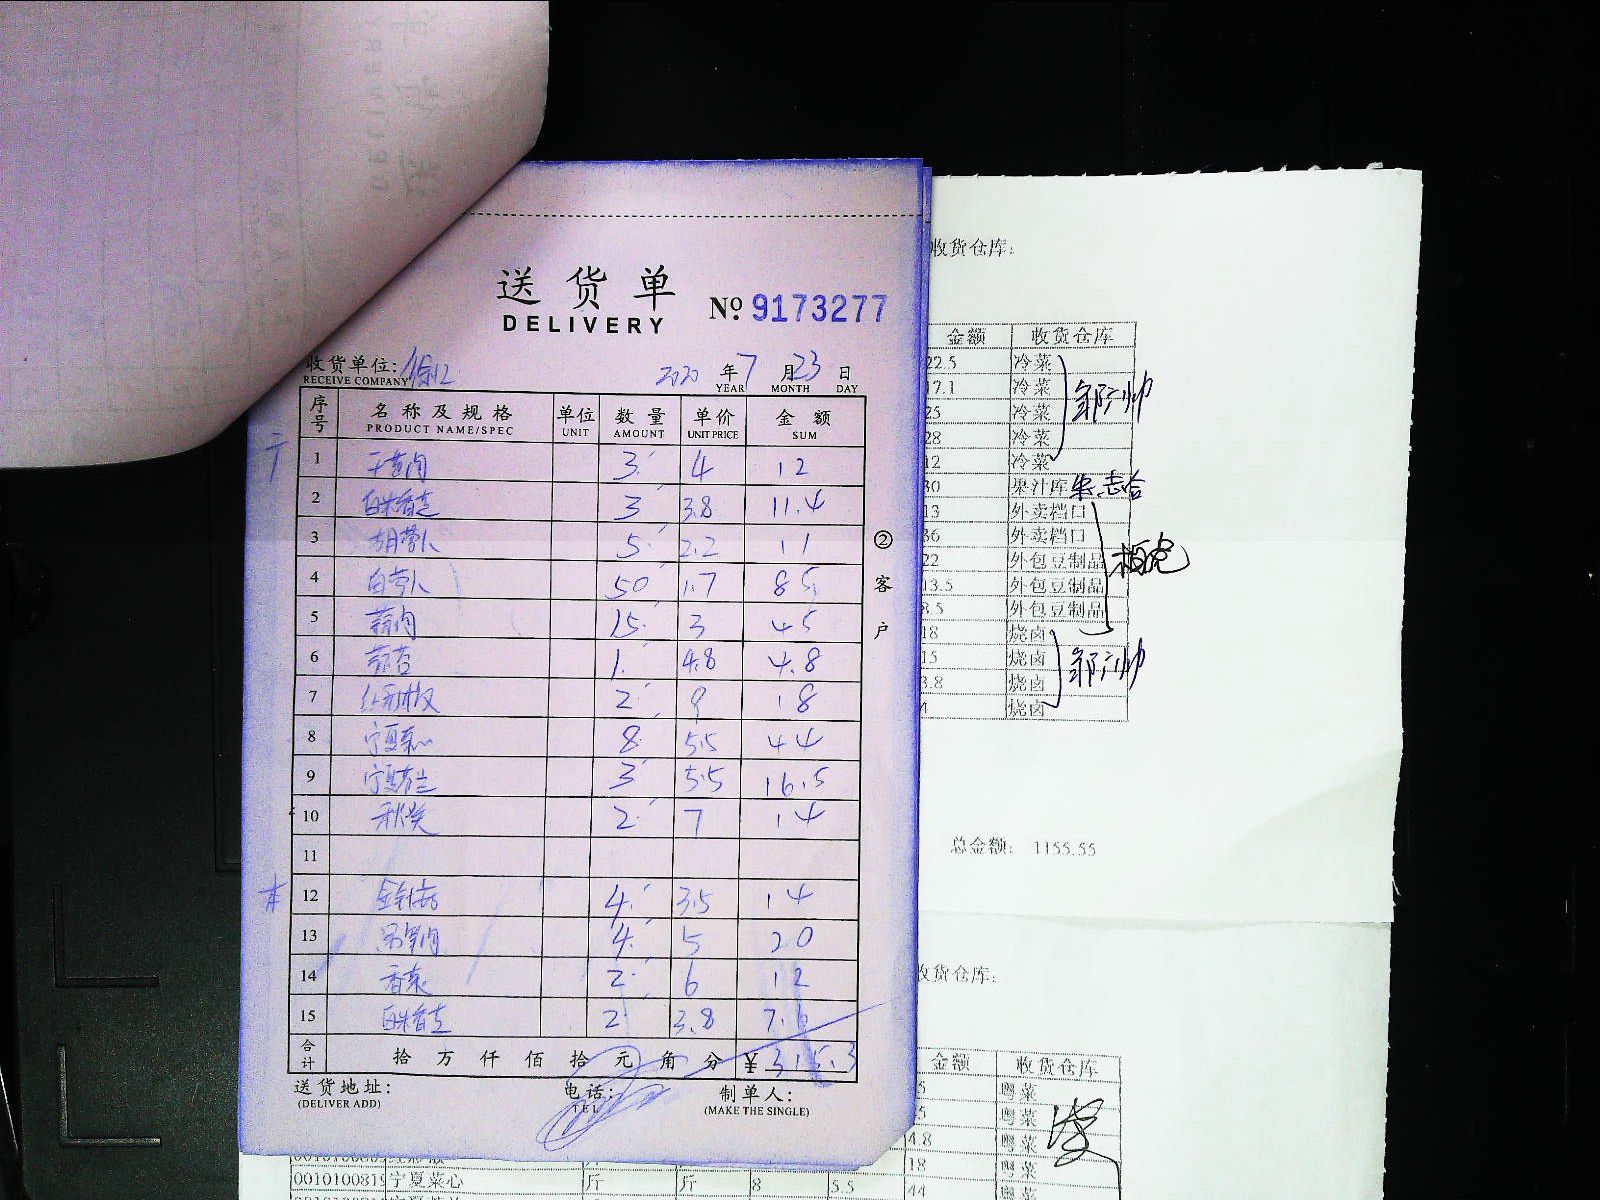 送货单
DELIVERY
№ 9173277
收货单位:
RECEIVE COMPANY
2020 年 7 月 23 日
YEAR MONTH DAY
序号 名称及规格 单位 数量 单价 金额
PRODUCT NAME/SPEC UNIT AMOUNT UNIT PRICE SUM
1 干葱肉 3 4 12
2 西芹 3 3.8 11.4
3 胡萝卜 5 2.2 11
4 白萝卜 50 1.7 85
5 蒜肉 15 3 45
6 1 4.8 4.8
7 2 9 18
8 宁夏菜心 8 5.5 44
9 宁夏芥兰 3 5.5 16.5
10 秋葵 2 7 14
11
12 金针菇 4 3.5 14
13 4 5 20
14 香菜 2 6 12
15 2 3.8 7.6
合计 拾 万 仟 佰 拾 元 角 分 ¥ 315.3
送货地址: 电话: 制单人:
(DELIVER ADD) TEL (MAKE THE SINGLE)
② 客户
收货仓库:
金额 收货仓库
22.5 冷菜
17.1 冷菜
25 冷菜
28 冷菜
12 冷菜
30 果汁库
13 外卖档口
36 外卖档口
22 外包豆制品
13.5 外包豆制品
8.5 外包豆制品
18 烧卤
15 烧卤
3.8 烧卤
4 烧卤
总金额: 1155.55
收货仓库:
金额 收货仓库
5 粤菜
5 粤菜
4.8 粤菜
18 粤菜
0010100819 宁夏菜心 斤 斤 8 5.5 44 粤菜